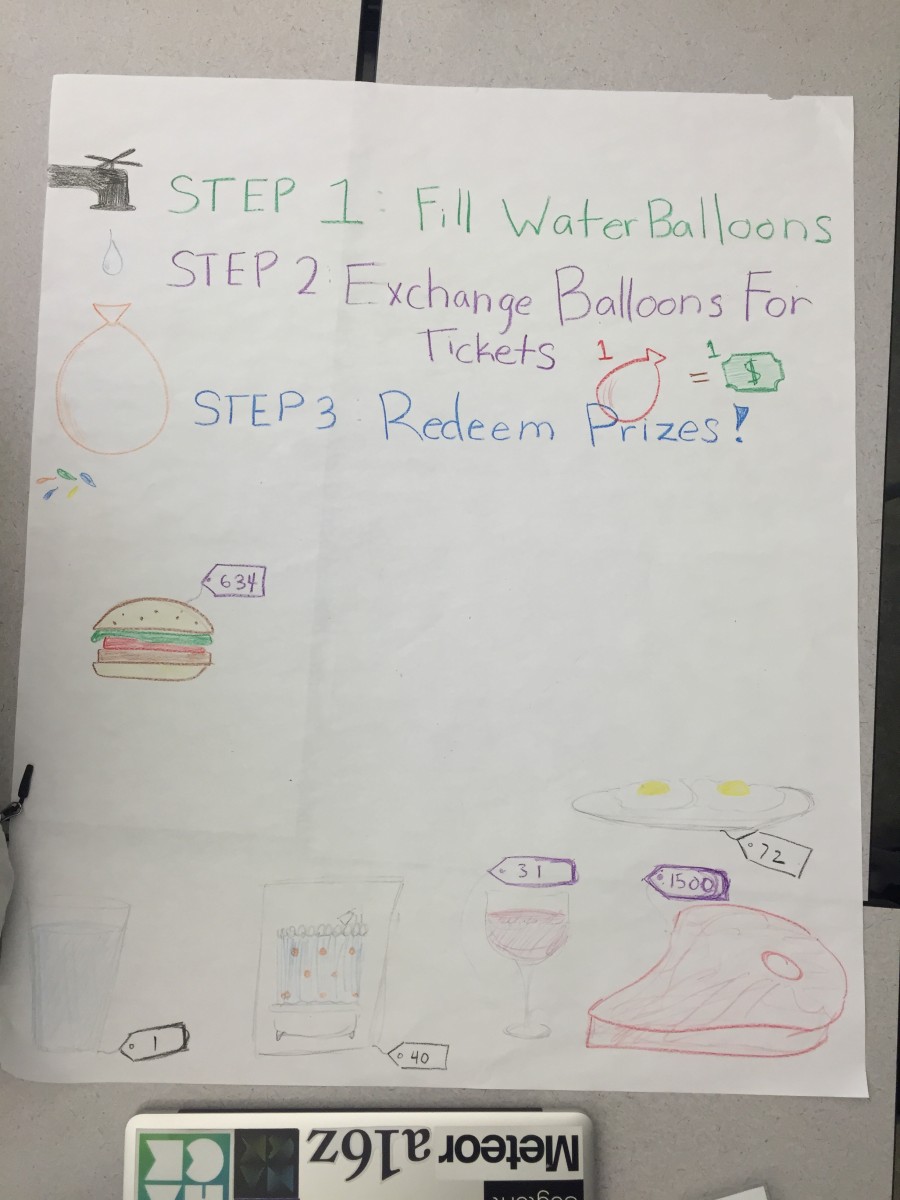 STEP 1: Fill Water Balloons
STEP 2: Exchange Balloons For
Tickets 1 = 1 $
STEP 3: Redeem Prizes!
634
72
31
1500
1
40
Meteor a16z